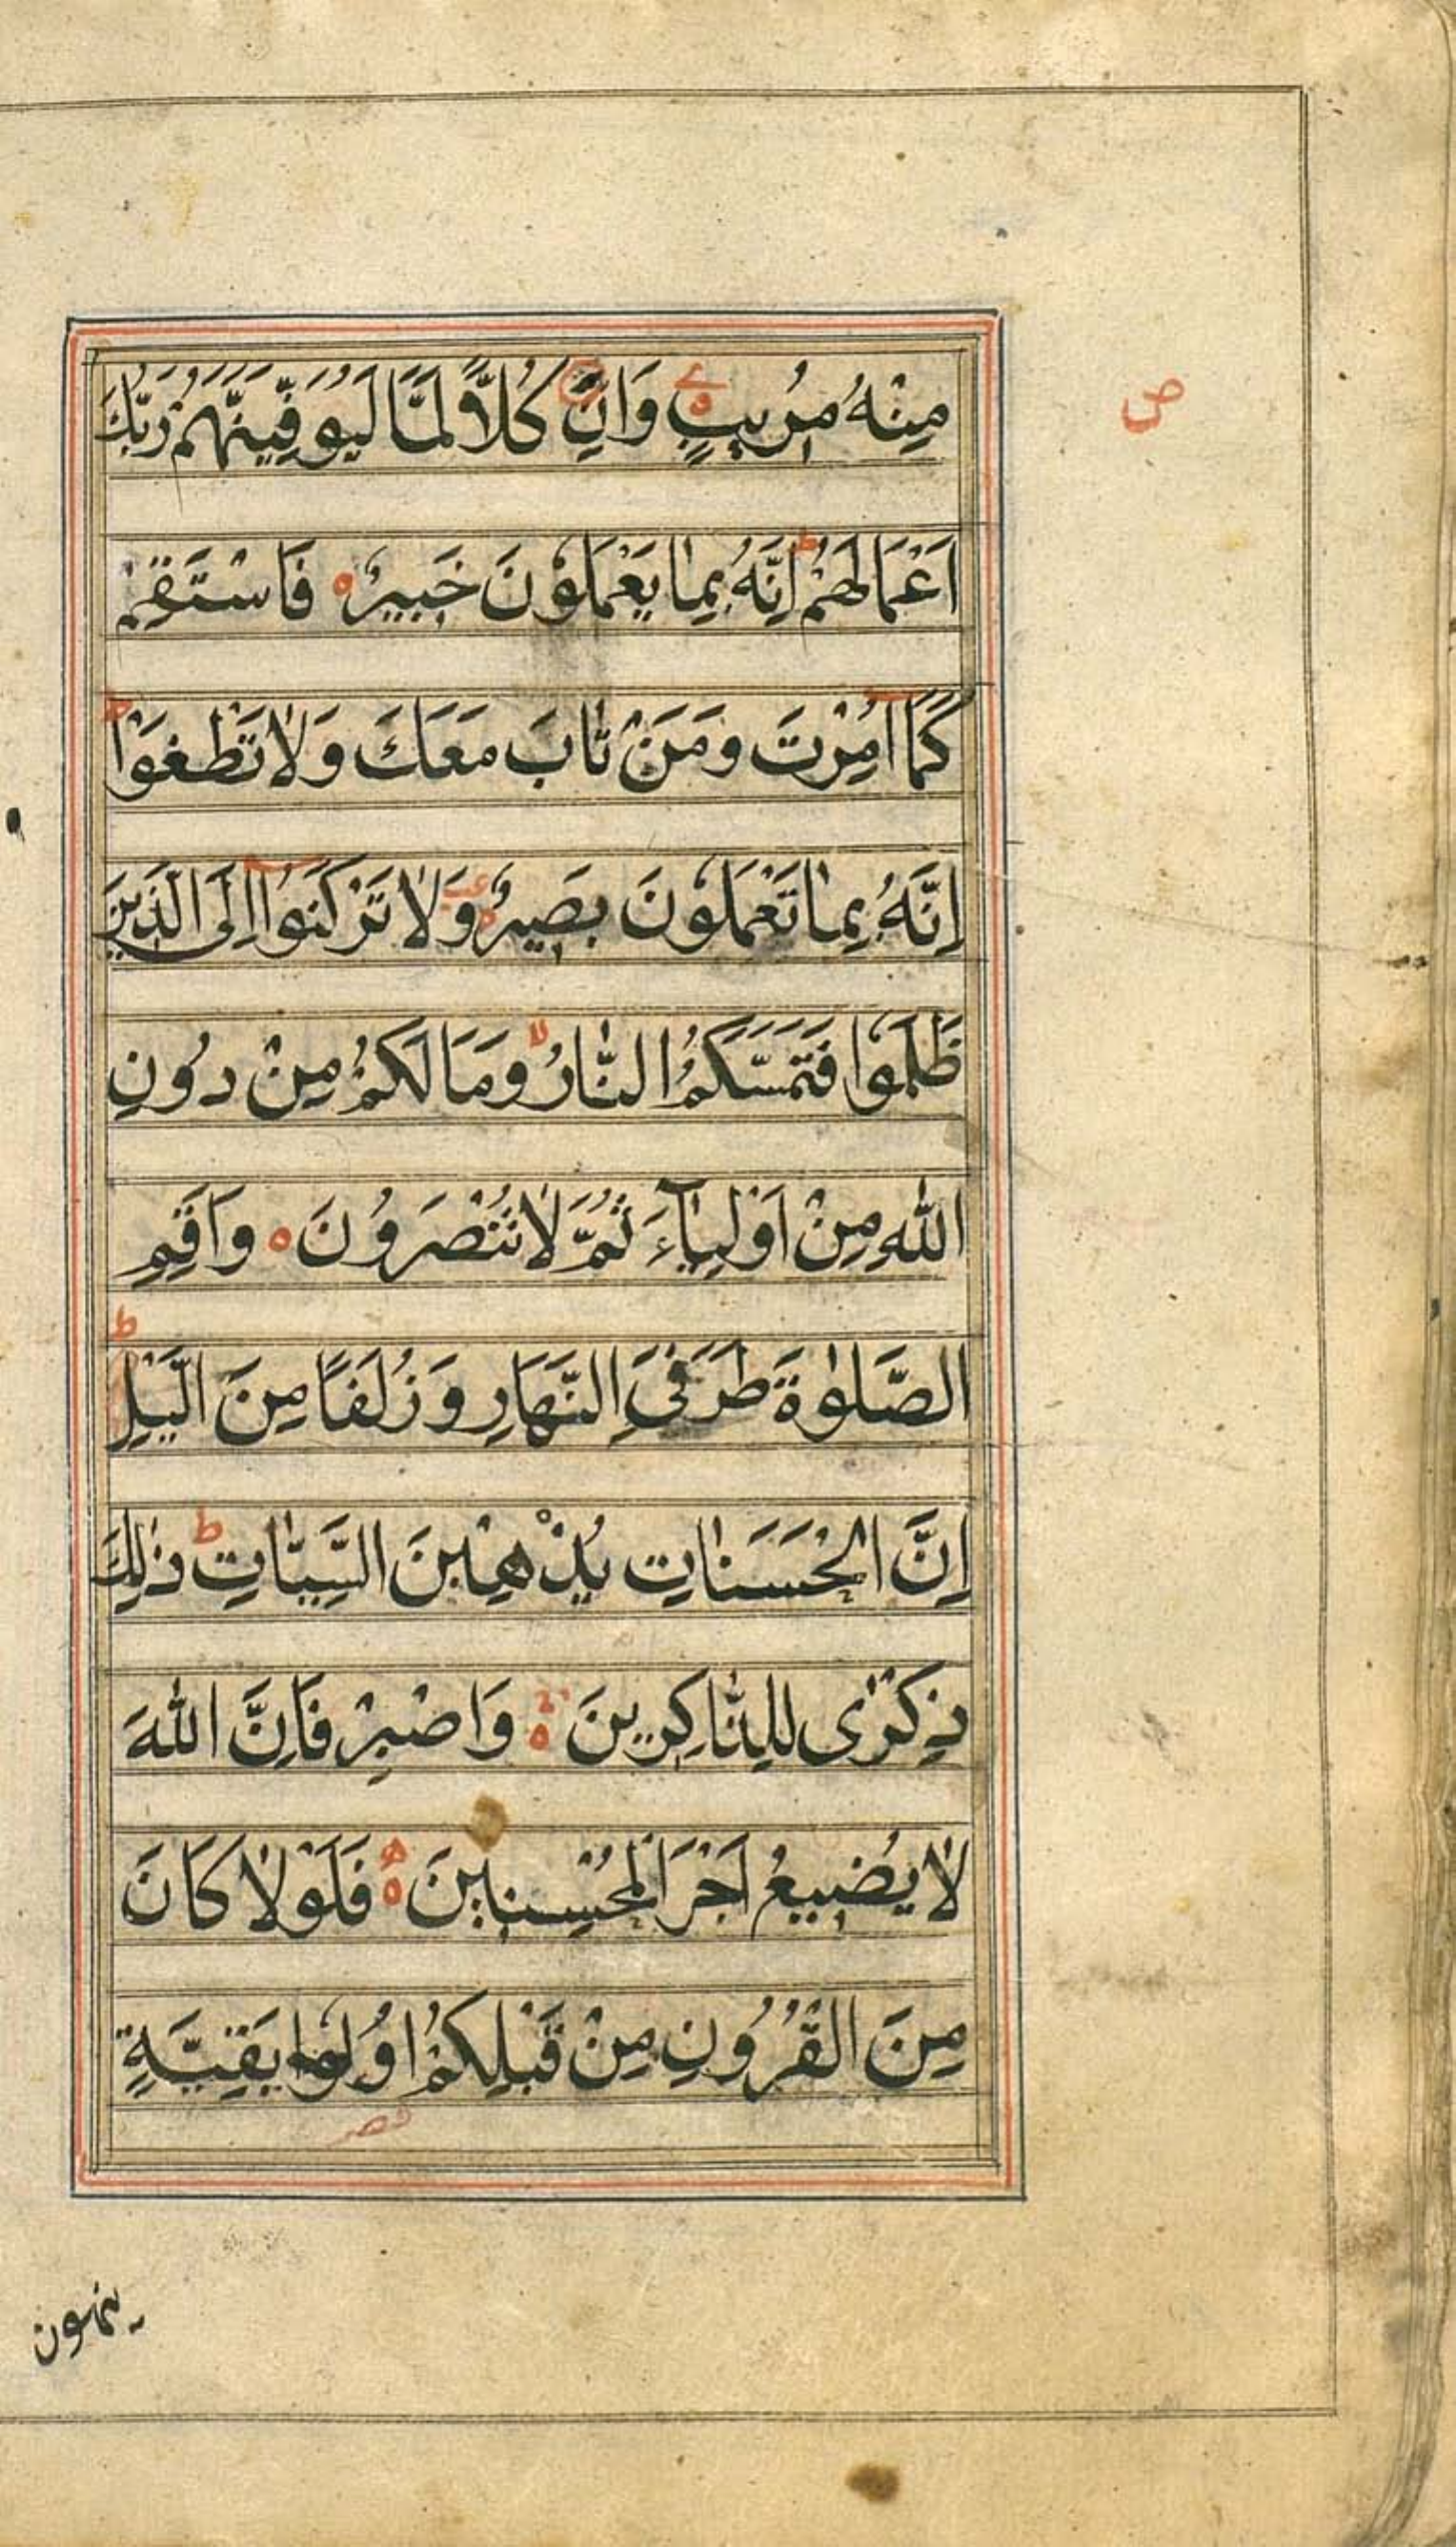 ص
مِنْهُ مُرِيبٍ وَاِنَّ كُلًّا لَمَّا لَيُوَفِّيَنَّهُمْ رَبُّكَ
اَعْمَالَهُمْ ط اِنَّهُ بِمَا يَعْمَلُوْنَ خَبِيرٌ ه فَاسْتَقِمْ
كَمَا اُمِرْتَ وَمَنْ تَابَ مَعَكَ وَلَا تَطْغَوْا
اِنَّهُ بِمَا تَعْمَلُوْنَ بَصِيرٌ وَلَا تَرْكَنُوا اِلَى الَّذِينَ
ظَلَمُوا فَتَمَسَّكُمُ النَّارُ لا وَمَا لَكُمْ مِنْ دُونِ
اللّٰهِ مِنْ اَوْلِيَآءَ ثُمَّ لَا تُنْصَرُوْنَ ه وَاَقِمِ
الصَّلٰوةَ طَرَفَيِ النَّهَارِ وَزُلَفًا مِنَ الَّيْلِ ط
اِنَّ الْحَسَنَاتِ يُذْهِبْنَ السَّيِّاٰتِ ط ذٰلِكَ
ذِكْرٰى لِلذَّاكِرِينَ ه وَاصْبِرْ فَاِنَّ اللّٰهَ
لَا يُضِيعُ اَجْرَ الْمُحْسِنِينَ ه فَلَوْلَا كَانَ
مِنَ الْقُرُوْنِ مِنْ قَبْلِكُمْ اُولُوا بَقِيَّةٍ
ينهون